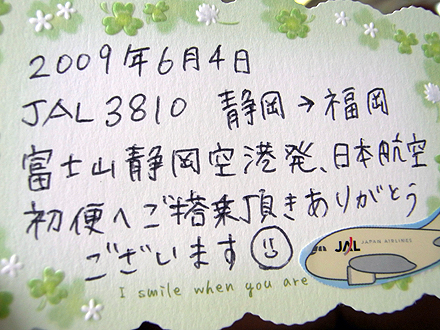 2009年6月4日
JAL3810 静岡→福岡
富士山静岡空港発、日本航空
初便へご搭乗頂きありがとう
ございます
JAL JAPAN AIRLINES
I smile when you are